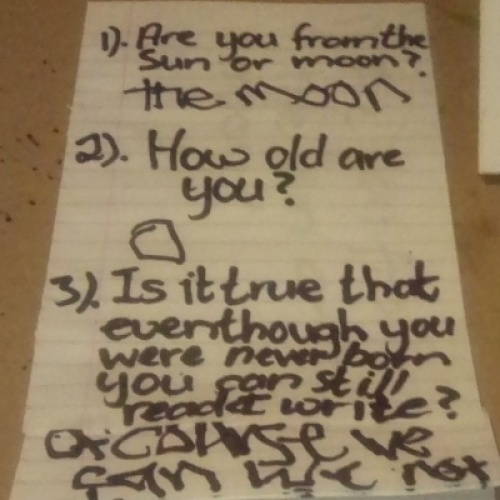 1). Are you from the
Sun or moon?
the moon
2). How old are
you?
0
3). Is it true that
even though you
were never born
you can still
read & write?
of course we
can we not